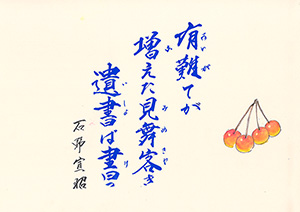 有難てが
増えた見舞客き
遺書ば書回っ
石野宣昭